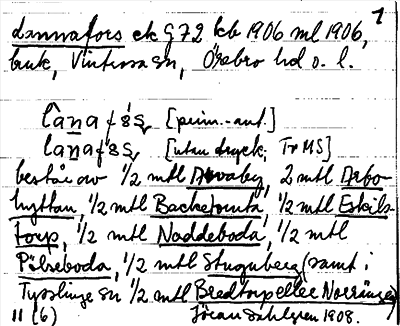 1
Lannafors ek G72 kb 1906 ml 1906,
bruk, Vintrosa sn, Örebro hd o. l.
[prim.-ant.]
[utan dryck, Tr MS]
består av 1/2 mtl Arvaby, 2 mtl Arbo-
hyttan, 1/2 mtl Backetomta, 1/2 mtl Eskils-
torp, 1/2 mtl Naddeboda, 1/2 mtl
Pålseboda, 1/2 mtl Stuguberg (samt i
Tysslinge sn 1/2 mtl Bredtorp eller Norrängen)
11 (6) Göran Dahlgren 1908.